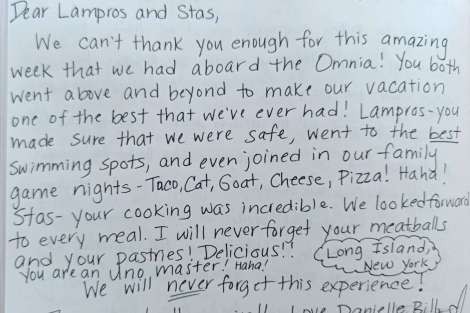 Dear Lampros and Stas,
We can't thank you enough for this amazing
week that we had aboard the Omnia! You both
went above and beyond to make our vacation
one of the best that we've ever had! Lampros-you
made sure that we were safe, went to the best
swimming spots, and even joined in our family
game nights - Taco, Cat, Goat, Cheese, Pizza! Haha!
Stas- your cooking was incredible. We looked forward
to every meal. I will never forget your meatballs
and your pastries! Delicious!!
You are an Uno master! Haha!
Long Island,
New York
We will never forget this experience!
Love Danielle